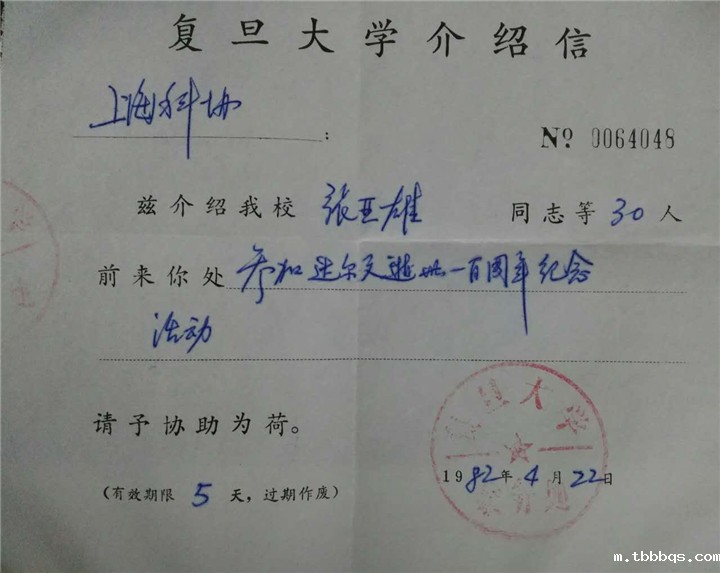 复旦大学介绍信
上海科协：
№ 0064048
兹介绍我校 张亚雄 同志等 30 人
前来你处 参加达尔文逝世一百周年纪念
活动
请予协助为荷。
复旦大学
(有效期限 5 天，过期作废)
1982年4月22日
m.tbbbqs.com